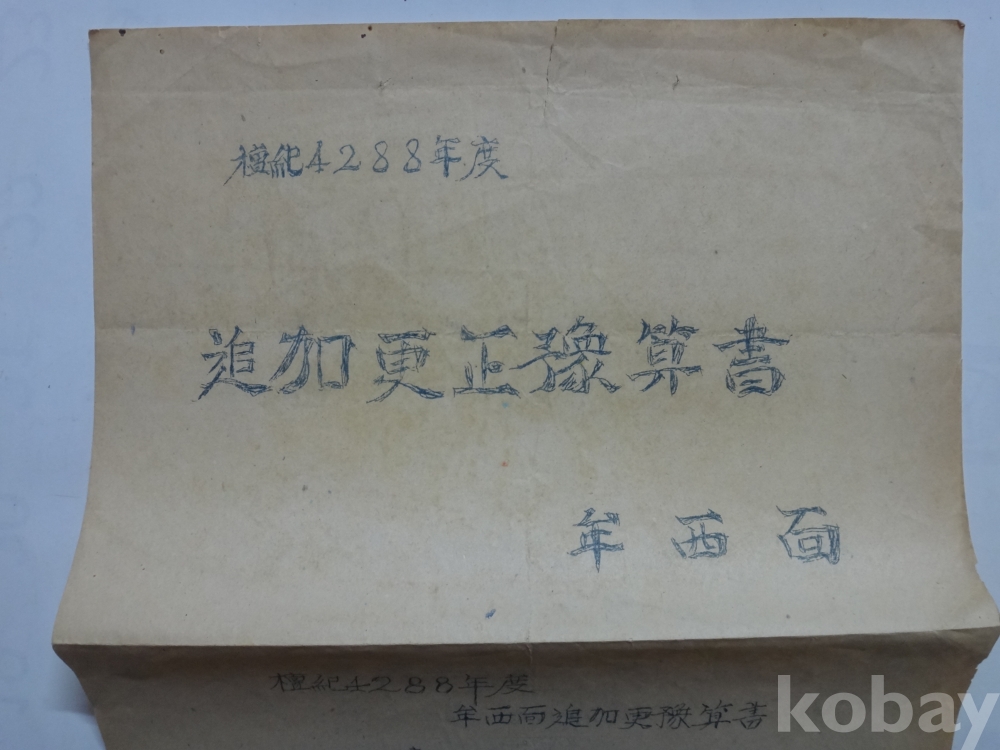 檀紀4288年度
追加更正豫算書
牟西面
檀紀4288年度
牟西面追加更豫算書
kobay